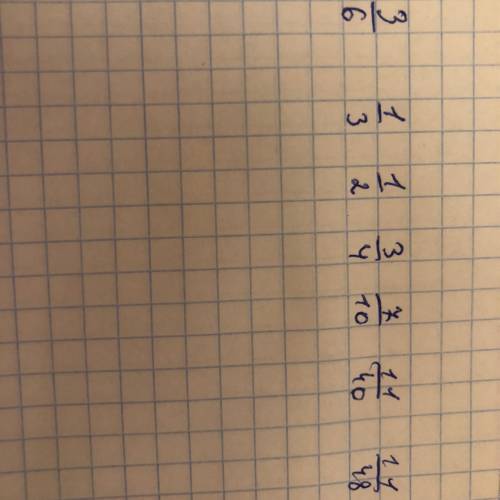 3/6 1/3 1/2 3/4 7/10 11/40 11/48